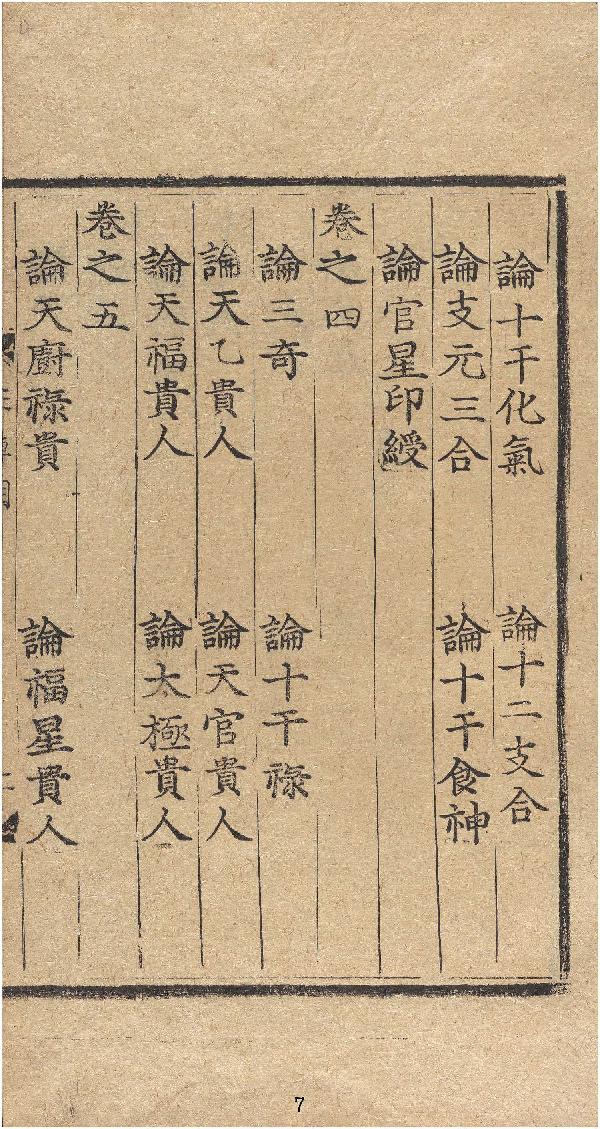 論十干化氣　論十二支合
論支元三合　論十干食神
論官星印綬
卷之四
論三奇　論十干祿
論天乙貴人　論天官貴人
論天福貴人　論太極貴人
卷之五
論天廚祿貴　論福星貴人
7